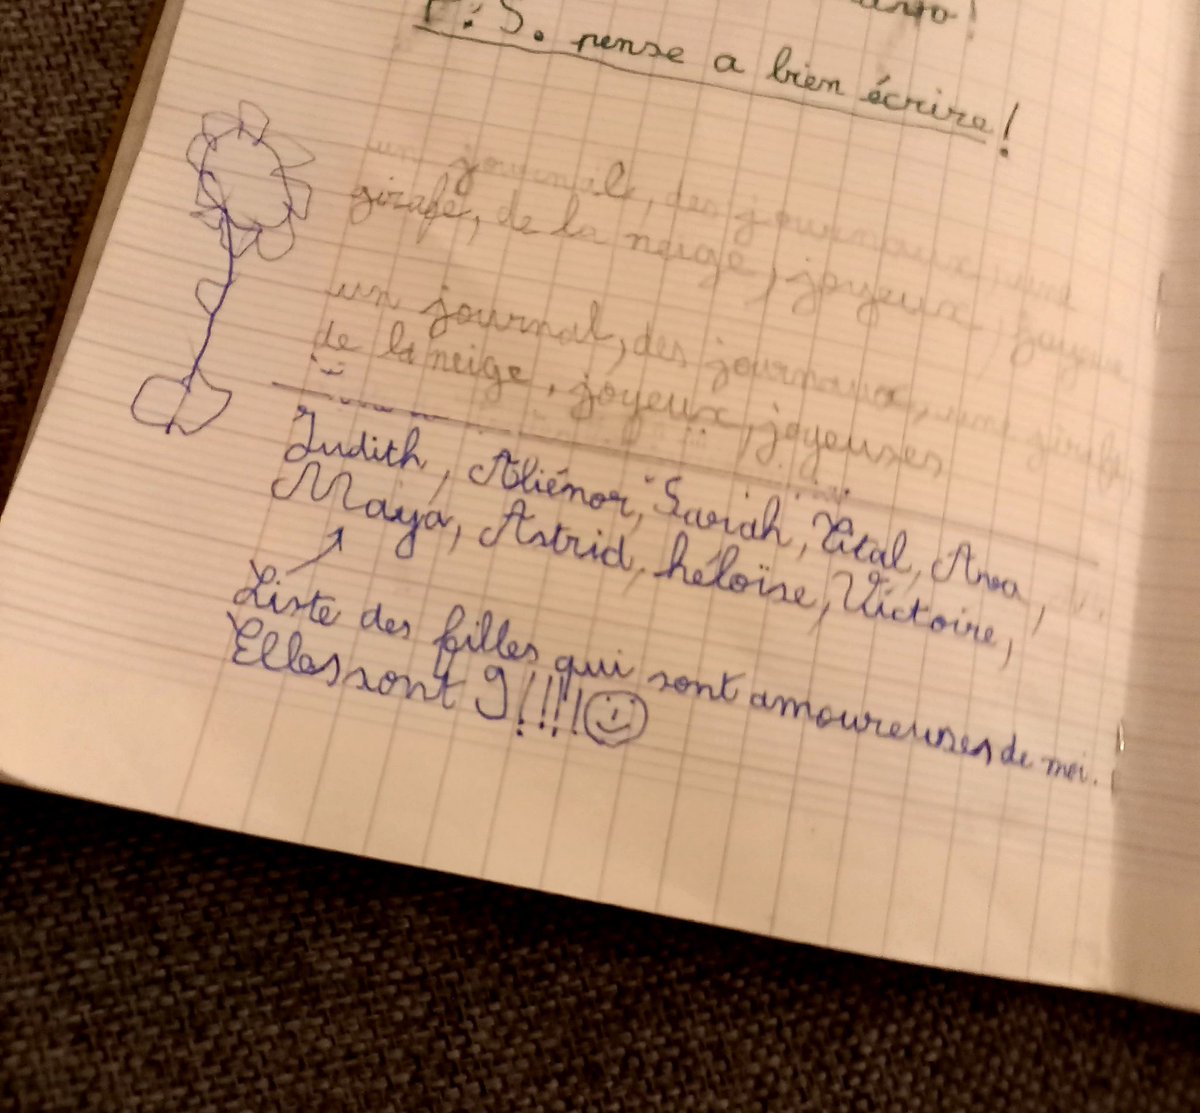 P.S. pense a bien écrire!
un journal, des journaux, une
girafe, de la neige, joyeux, joyeuse
un journal, des journaux, une girafe,
de la neige, joyeux, joyeuses
Judith, Aliénor, Sariah, Vital, Anea,
Maya, Astrid, héloïse, Victoire,
Liste des filles qui sont amoureuses de moi.
Elles sont 9!!!!